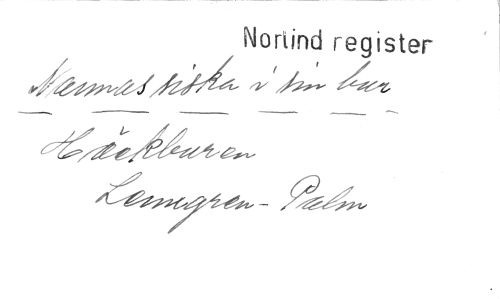 Norlind register
Mammas siska i sin bur
Häckburen
Lemgren - Palm